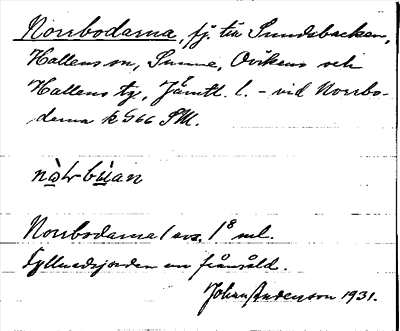 Norrbodarna, fj. till Sundsbacken,
Hallens sn, Sunne, Ovikens och
Hallens tg, Jämtl. l. - vid Norrbo-
darna k 566 SM.
nὰɫrbùan
Norrbodarna / avs. 1/8 ml.
Fyllnadsjorden en frånsåld.
Johan Andersson 1931.